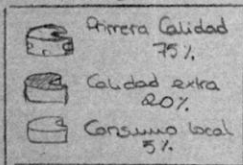 Primera Calidad
75%
Calidad extra
20%
Consumo local
5%